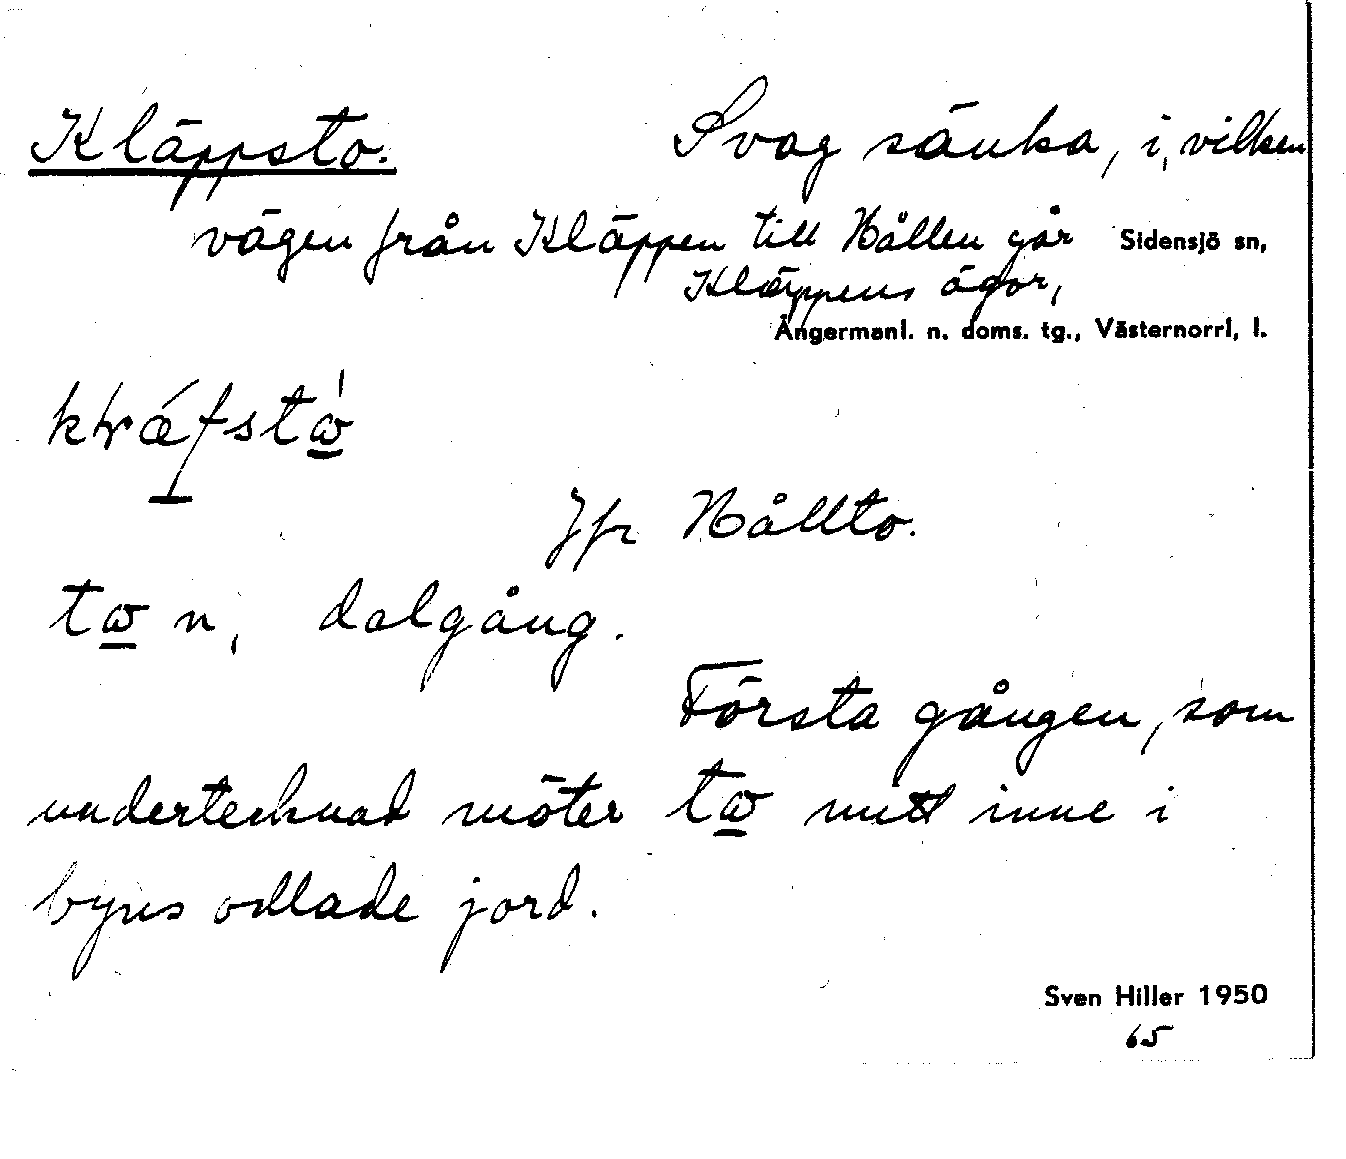 Kläppsto. Svag sänka, i vilken
vägen från Kläppen till Hållen går Sidensjö sn,
Kläppens ägor,
Ångermanl. n. doms. tg., Västernorrl, l.
Jfr Hållto.
n, dalgång.
Första gången, som
undertecknad möter mitt inne i
byns odlade jord.
Sven Hiller 1950
65